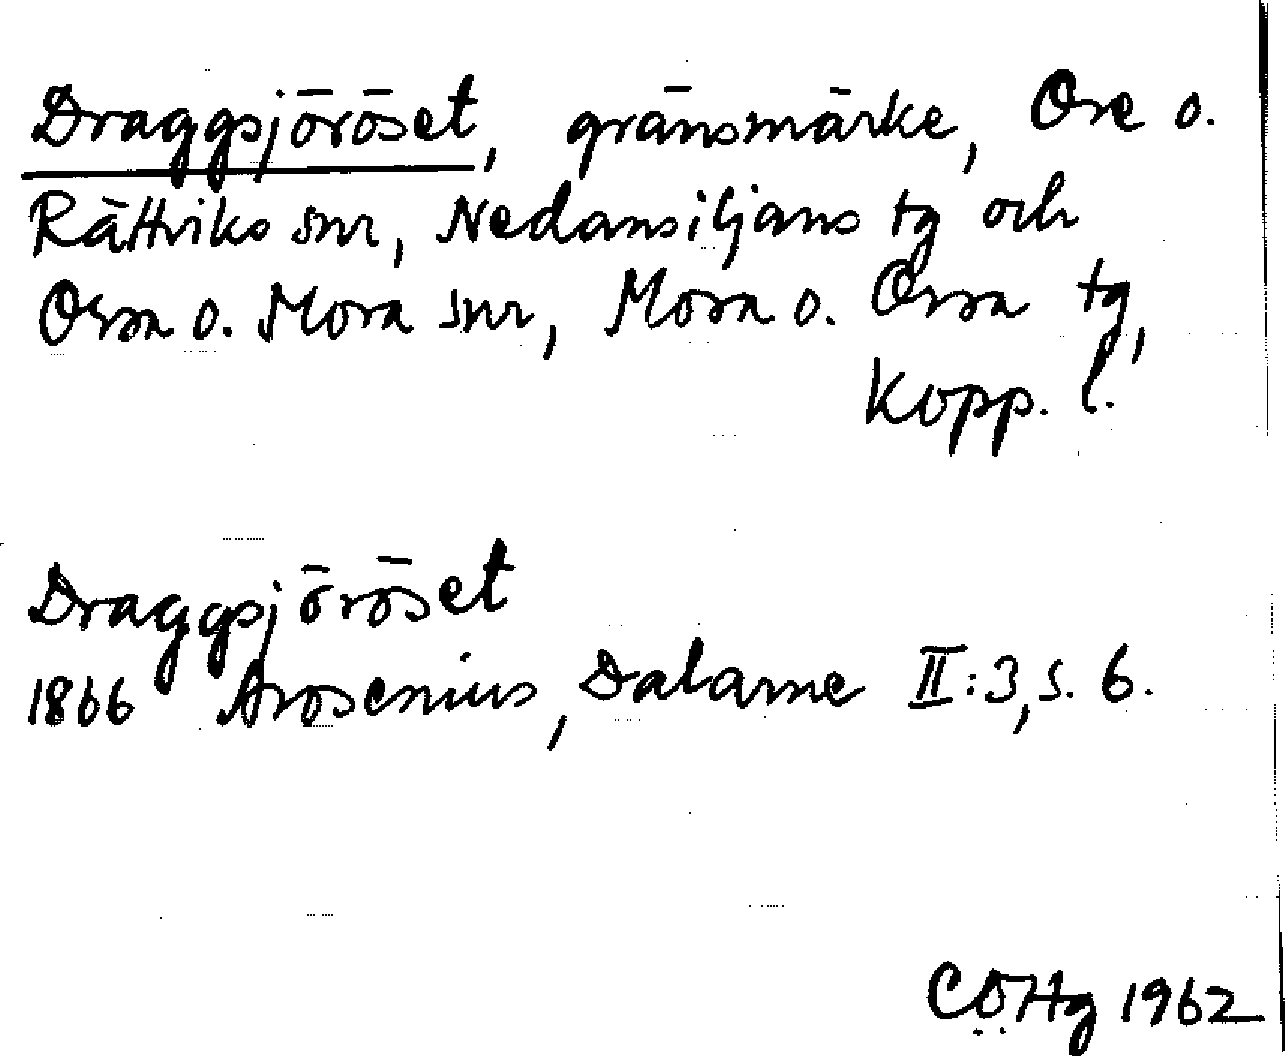 Draggsjöröset, gränsmärke, Ore o.
Rättviks snr, Nedansiljans tg och
Orsa o. Mora snr, Mora o. Orsa tg,
Kopp. l.
Draggsjöröset
1866 Arosenius, Dalarne II:3, s. 6.
CÖHg 1962